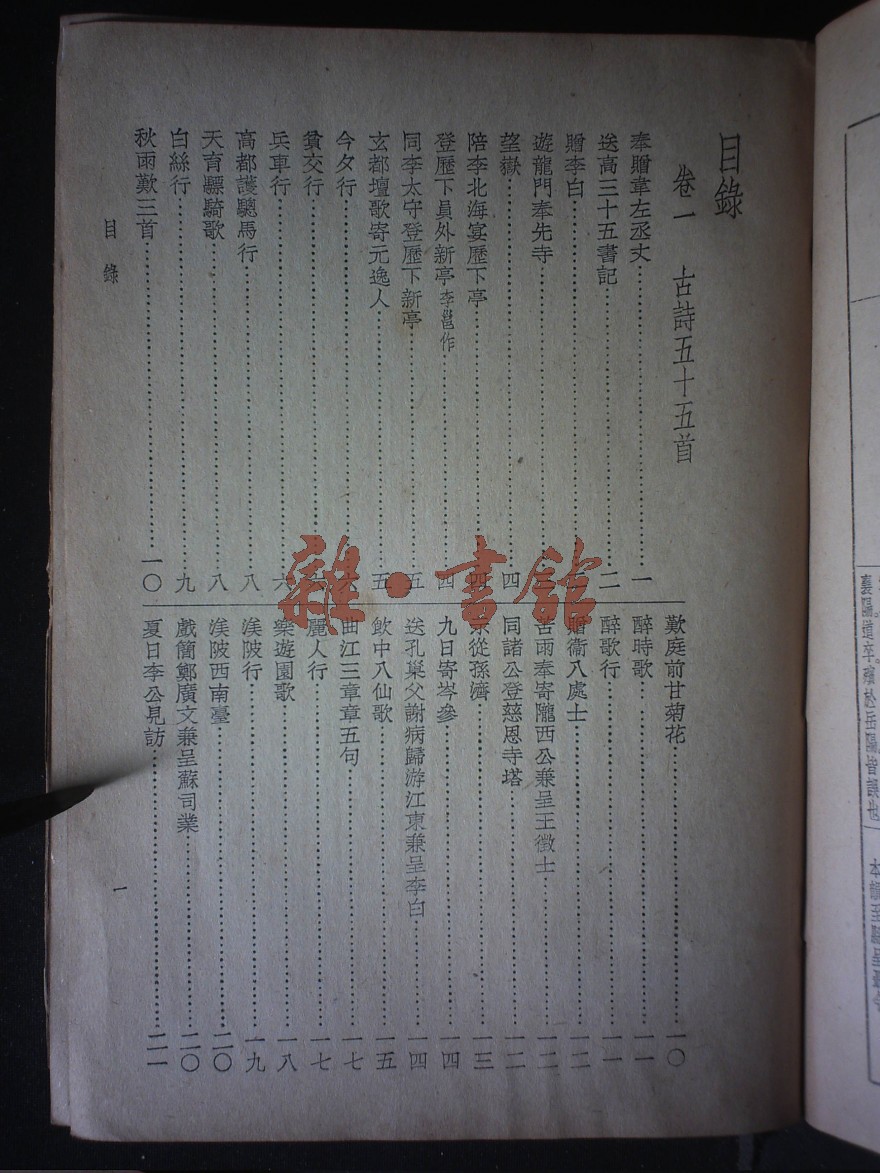 目錄
卷一 古詩五十五首
奉贈韋左丞丈……一
送高三十五書記……二
贈李白……
遊龍門奉先寺……三
望嶽……四
陪李北海宴歷下亭……四
登歷下員外新亭 李邕作……四
同李太守登歷下新亭……五
玄都壇歌寄元逸人……五
今夕行……六
貧交行……六
兵車行……六
高都護驄馬行……八
天育驃騎歌……八
白絲行……九
秋雨歎三首……一〇
歎庭前甘菊花……一〇
醉時歌……一一
醉歌行……一一
贈衞八處士……一二
苦雨奉寄隴西公兼呈王徵士……一二
同諸公登慈恩寺塔……一二
示從孫濟……一三
九日寄岑參……一四
送孔巢父謝病歸游江東兼呈李白……一四
飲中八仙歌……一五
曲江三章章五句……一七
麗人行……一七
樂遊園歌……一八
渼陂行……一九
渼陂西南臺……二〇
戲簡鄭廣文兼呈蘇司業……二〇
夏日李公見訪……二一
目錄
一
雜·書館